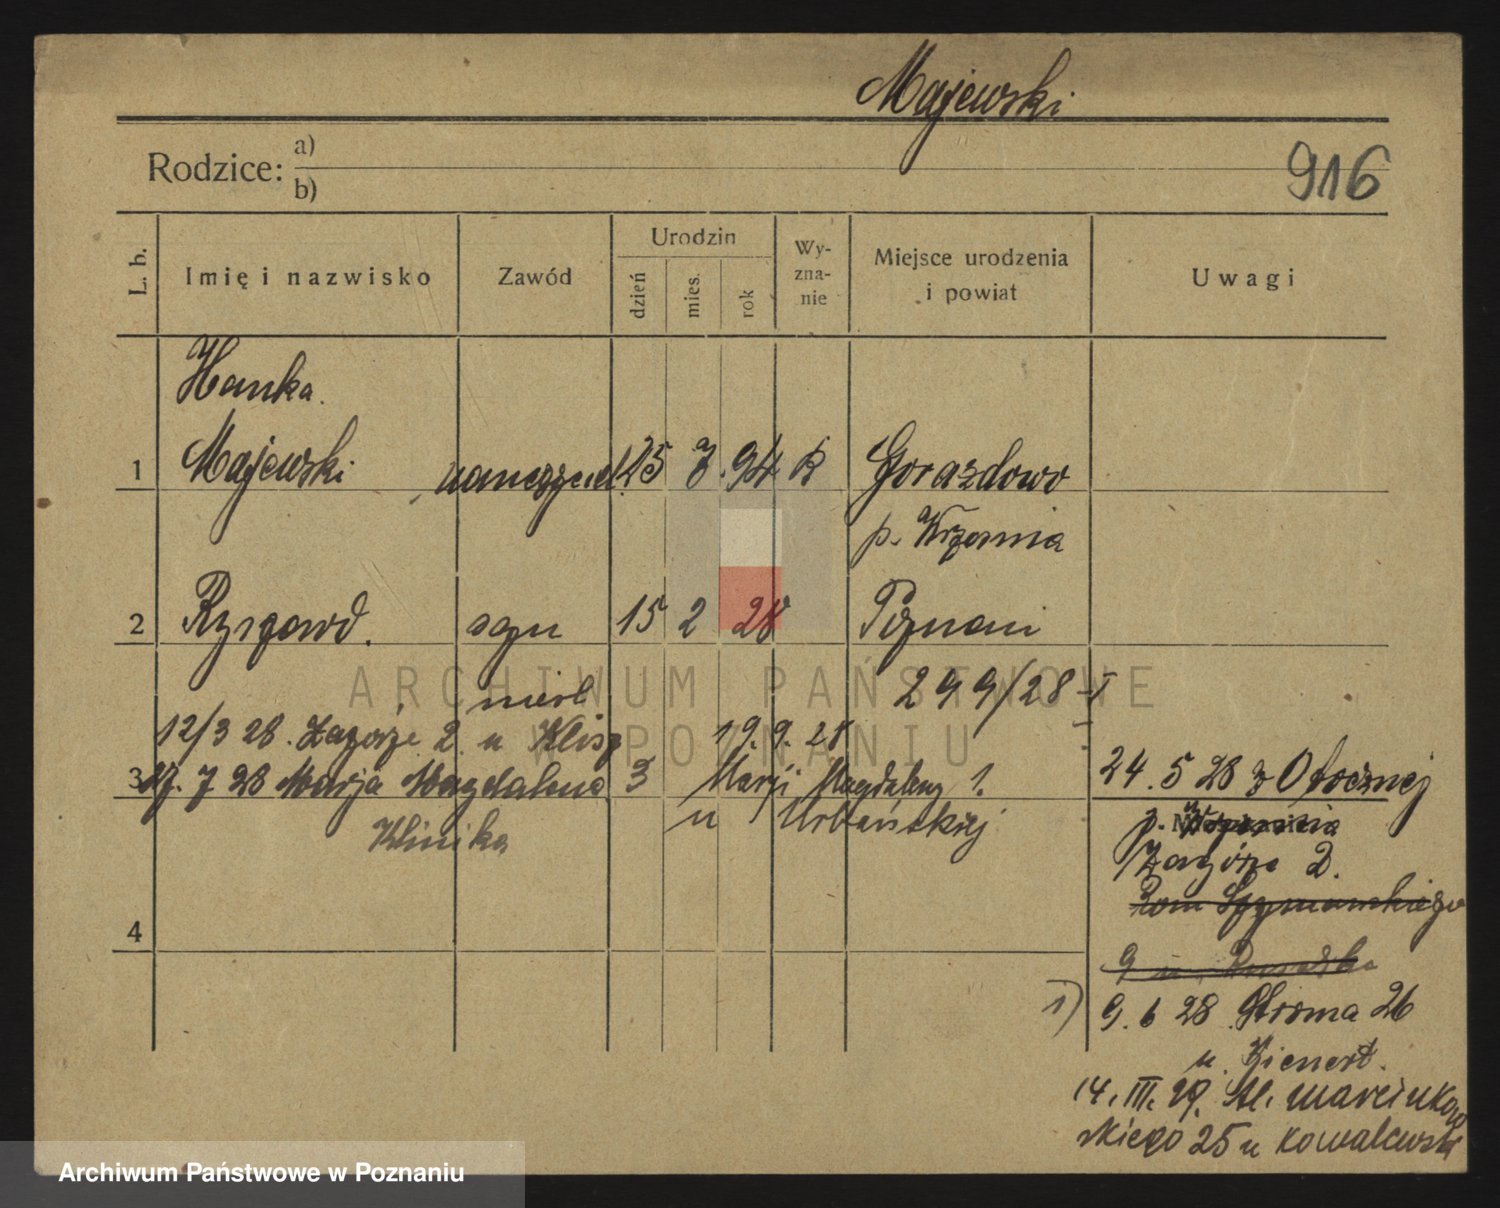 Majewski
Rodzice: a)
b)
916
L. b.
Imię i nazwisko
Zawód
Urodzin
dzień
mies.
rok
Wy-
zna-
nie
Miejsce urodzenia
i powiat
Uwagi
Hanka
1 Majewski 25 7. 94 k Gorazdowo
p. Września
2 Ryszard. syn 15 2 28 Poznań
nieśl 299/28-I
12/3 28. Zagórze 2. u
3 7 28 Marja Magdalena 3
Klinika
19. 9. 28
Marji Magdaleny 1.
u Urbańskiej
24. 5 28 z Otocznej
p. Września
Zagórze 2.
Rom Szymańskiego
9 u
4
1) 9. 6 28 Stroma 26
u. Kienert.
14. III. 29. Al. Marcinkow
skiego 25 u Kowalewski
ARCHIWUM PAŃSTWOWE
W POZNANIU
Archiwum Państwowe w Poznaniu